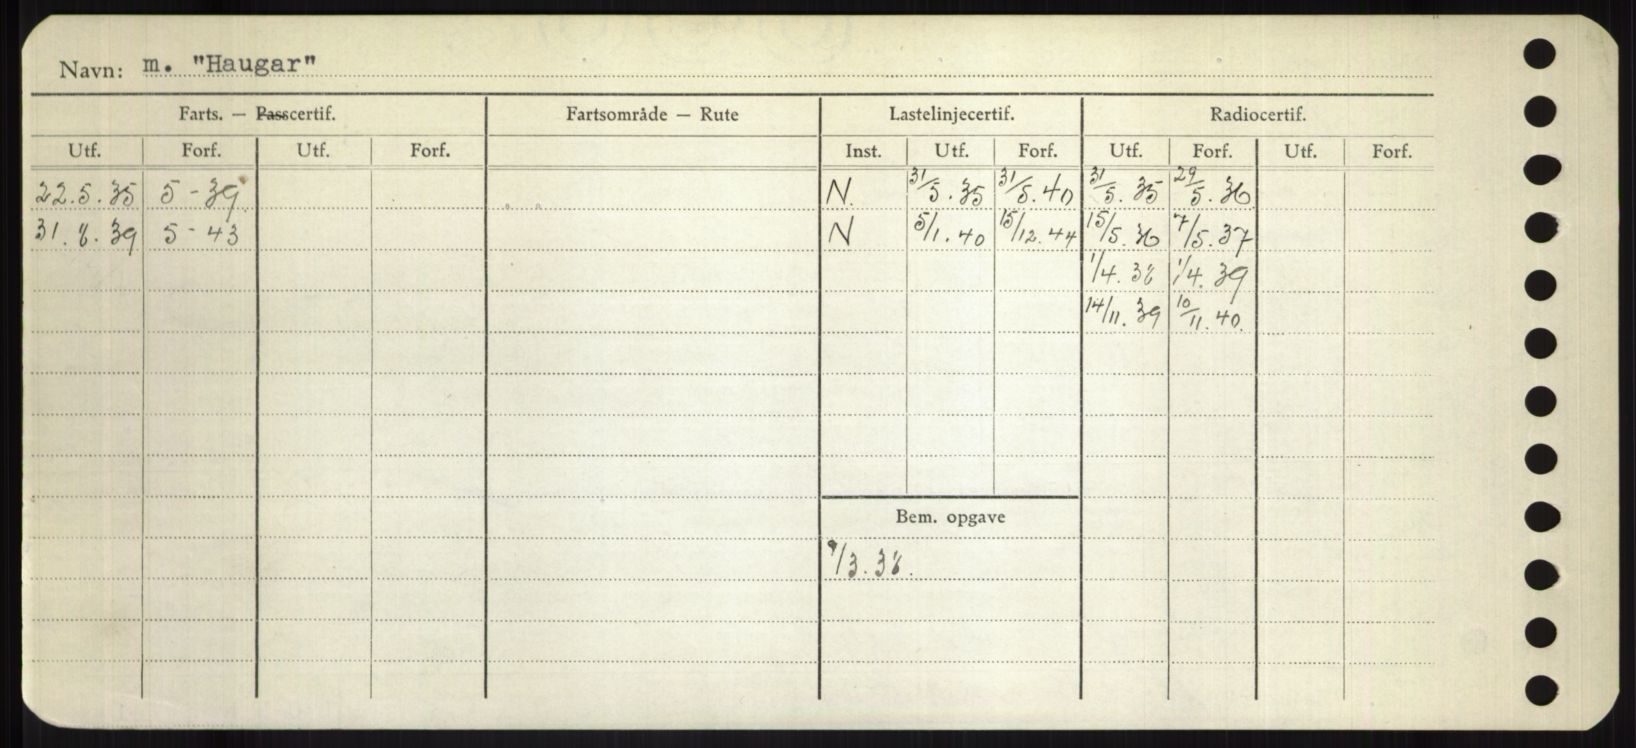 Navn: m. "Haugar"
Farts. — Passcertif. Fartsområde — Rute Lastelinjecertif. Radiocertif.
Utf. Forf. Utf. Forf. Inst. Utf. Forf. Utf. Forf. Utf. Forf.
22.5.35 5-39 N. 31/5.35 31/5.40 31/5.35 29/5.36
31.8.39 5-43 N 5/1.40 15/12.44 15/5.36 7/5.37
1/4.38 1/4.39
14/11.39 10/11.40
Bem. opgave
9/3.38.